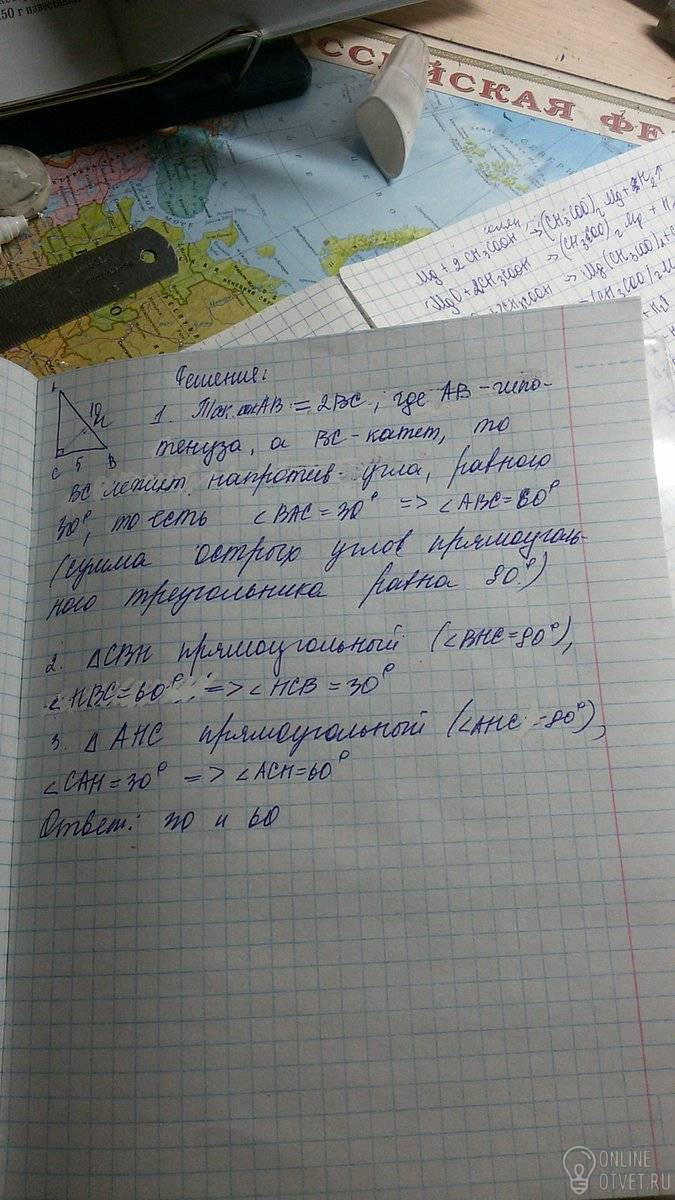 50 г известняка,
ССИЙСКАЯ ФЕ
Mg + 2CH3COOH → (CH3COO)2Mg + H2↑
MgO + 2CH3COOH → (CH3COO)2Mg + H
Решения:
1. Так как AB = 2BC, где AB - гипо-
тенуза, а BC - катет, то
BC лежит напротив угла, равного
30°, то есть ∠BAC = 30° => ∠ABC = 60°
(сумма острых углов прямоуголь-
ного треугольника равна 90°)
10
H
C 5 B
2. △CBH прямоугольный (∠BHC = 90°),
∠HBC = 60° => ∠HCB = 30°
3. △AHC прямоугольный (∠AHC = 90°),
∠CAH = 30° => ∠ACH = 60°
Ответ: 30 и 60
ONLINE
OTVET.RU